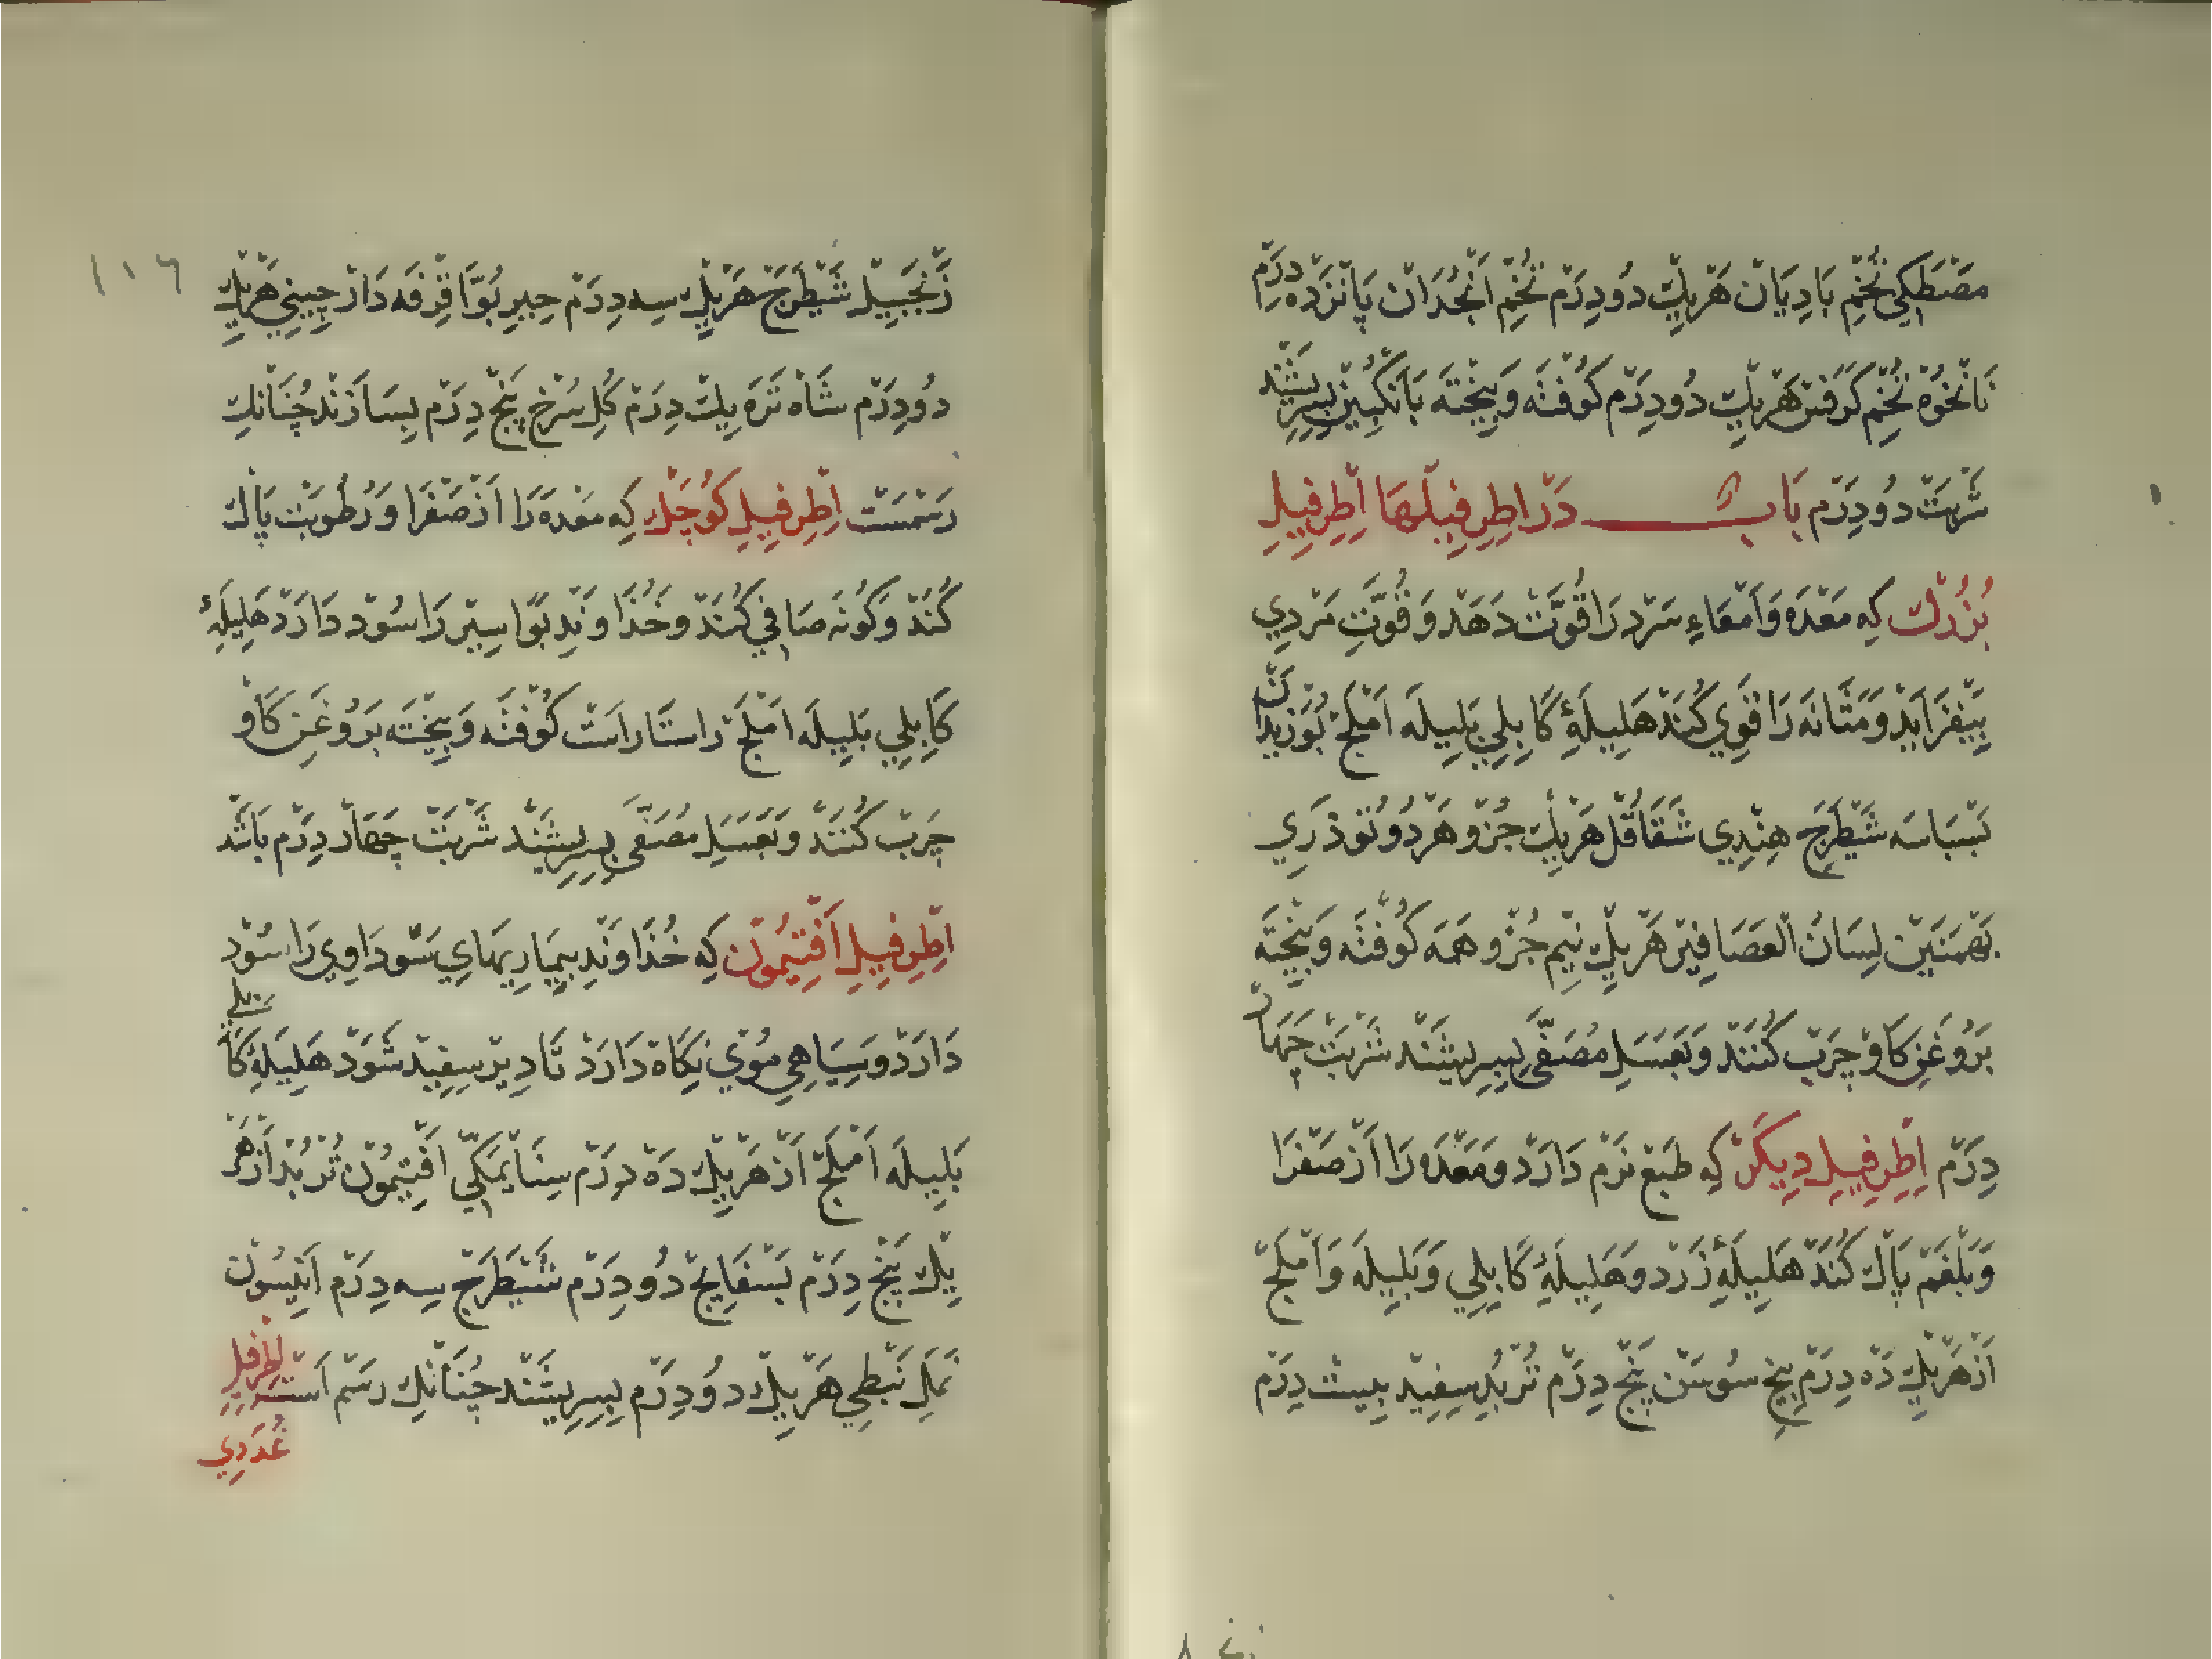 مَصْطَكِي تُخْمِ بَادِيَانْ هَرْيِكْ دُودِرَمْ تُخْمِ اَنْجُدَانْ پَانْزَدَه دِرَمْ
نَانْخُوَهْ تُخْمِ كَرَفْسْ هَرْيِكْ دُودِرَمْ كُوفْتَه وَبِيخْتَه بَاَنْگُبِينْ بِسِرِيشَنْد
شَرْبَتْ دُودِرَمْ بَابْ دَرْ اِطْرِفِيلْهَا اِطْرِفِيلِ
بُزُرْكْ كِه مَعْدَه وَاَمْعَاءِ سَرْد رَا قُوَّتْ دَهَد وَقُوَّتِ مَرْدِي
بِيَفْزَايَدْ وَمَثَانَه رَا قَوِي كُنَدْ هَلِيلَهٔ كَابِلِي بَلِيلَه اَمْلَجْ بُوزِيدَانْ
بَسْبَاسَه شَيْطَرَجْ هِنْدِي شَقَاقُلْ هَرْيِكْ جُزْو هَرْدُو تُوذَرِي
بَهْمَنَيْن لِسَانُ الْعَصَافِيْر هَرْيِكْ نِيمْ جُزْو هَمَه كُوفْتَه وَبِيخْتَه
بَرُوغَنِ كَاوْ چَرْبْ كُنَنْد وَبَعَسَلِ مُصَفَّى بِسِرِيشَنْد شَرْبَتْ چَهَارْ
دِرَمْ اِطْرِفِيلِ دِيكَرْ كِه طَبْع نَرْم دَارَدْ وَمَعْدَه رَا اَزْ صَفْرَا
وَبَلْغَمْ پَاكْ كُنَدْ هَلِيلَهٔ زَرْد وَهَلِيلَهٔ كَابِلِي وَبَلِيلَه وَاَمْلَجْ
اَزْ هَرْيِكْ دَه دِرَمْ بِيخِ سُوسَنْ پَنْجْ دِرَمْ تُرْبُدِ سِفِيدْ بِيسْتْ دِرَمْ
زَنْجَبِيلْ شَيْطَرَجْ هَرْيِكْ سِه دِرَمْ بُوَّا قِرْفَه دَارْچِينِي هَرْيِكْ
دُودِرَمْ شَاهْ تَرَه يِكْ دِرَمْ گُلِ سُرْخ پَنْجْ دِرَمْ بِسَازَنْد چُنَانْكِ
رَسْمَسْتْ اِطْرِفِيلِ كُوچَكْ كِه مَعْدَه رَا اَزْ صَفْرَا وَرُطُوبَتْ پَاكْ
كُنَدْ وَكُونَه صَافِي كُنَدْ وَخُذَاوَنْدِ بَوَاسِيرْ رَا سُوْد دَارَدْ هَلِيلَهٔ
كَابِلِي بَلِيلَه اَمْلَجْ رَاسْتَارَاسْتْ كُوفْتَه وَبِيخْتَه بَرُوغَنِ كَاوْ
چَرْبْ كُنَنْد وَبَعَسَلِ مُصَفَّى بِسِرِيشَنْد شَرْبَتْ چَهَارْ دِرَمْ بَاشَدْ
اِطْرِفِيلِ اَفْتِيمُونْ كِه خُذَاوَنْدِ بِيمَارِيهَايِ سَوْدَاوِي رَا سُوْد
دَارَدْ وَسِيَاهِي مُوْي نِكَاهْ دَارَدْ تَا دِيرْ سِفِيدْ شَوَدْ هَلِيلَهٔ كَابِلِي
بَلِيلَه اَمْلَجْ اَزْ هَرْيِكْ دَهْ دِرَمْ سِنَايِ مَكِّي اَفْتِيمُونْ تُرْبُدْ اَزْهَرْ
يِكْ پَنْجْ دِرَمْ بَسْفَايِجْ دُودِرَمْ شَيْطَرَجْ سِه دِرَمْ اَنِيسُونْ
نَمَكِ نَبْطِي هَرْيِكْ دُودِرَمْ بِسِرِيشَنْد چُنَانْكِ رَسْم اَسْت اِطْرِفِيلِ
غُدَدِي
١١٦